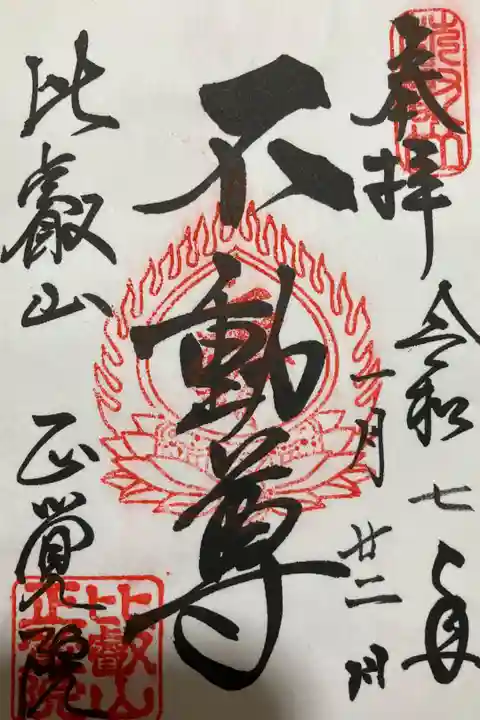 奉拝
令和七年
一月廿二日
不動尊
比叡山 正覚院
比叡山
正覚院